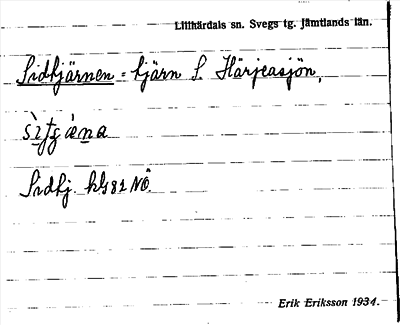 Lillhärdals sn. Svegs tg. Jämtlands län.
Sidkjärnen = kjärn S. Härjeasjön,
Sidkj. kbl 81 NÖ.
Erik Eriksson 1934.